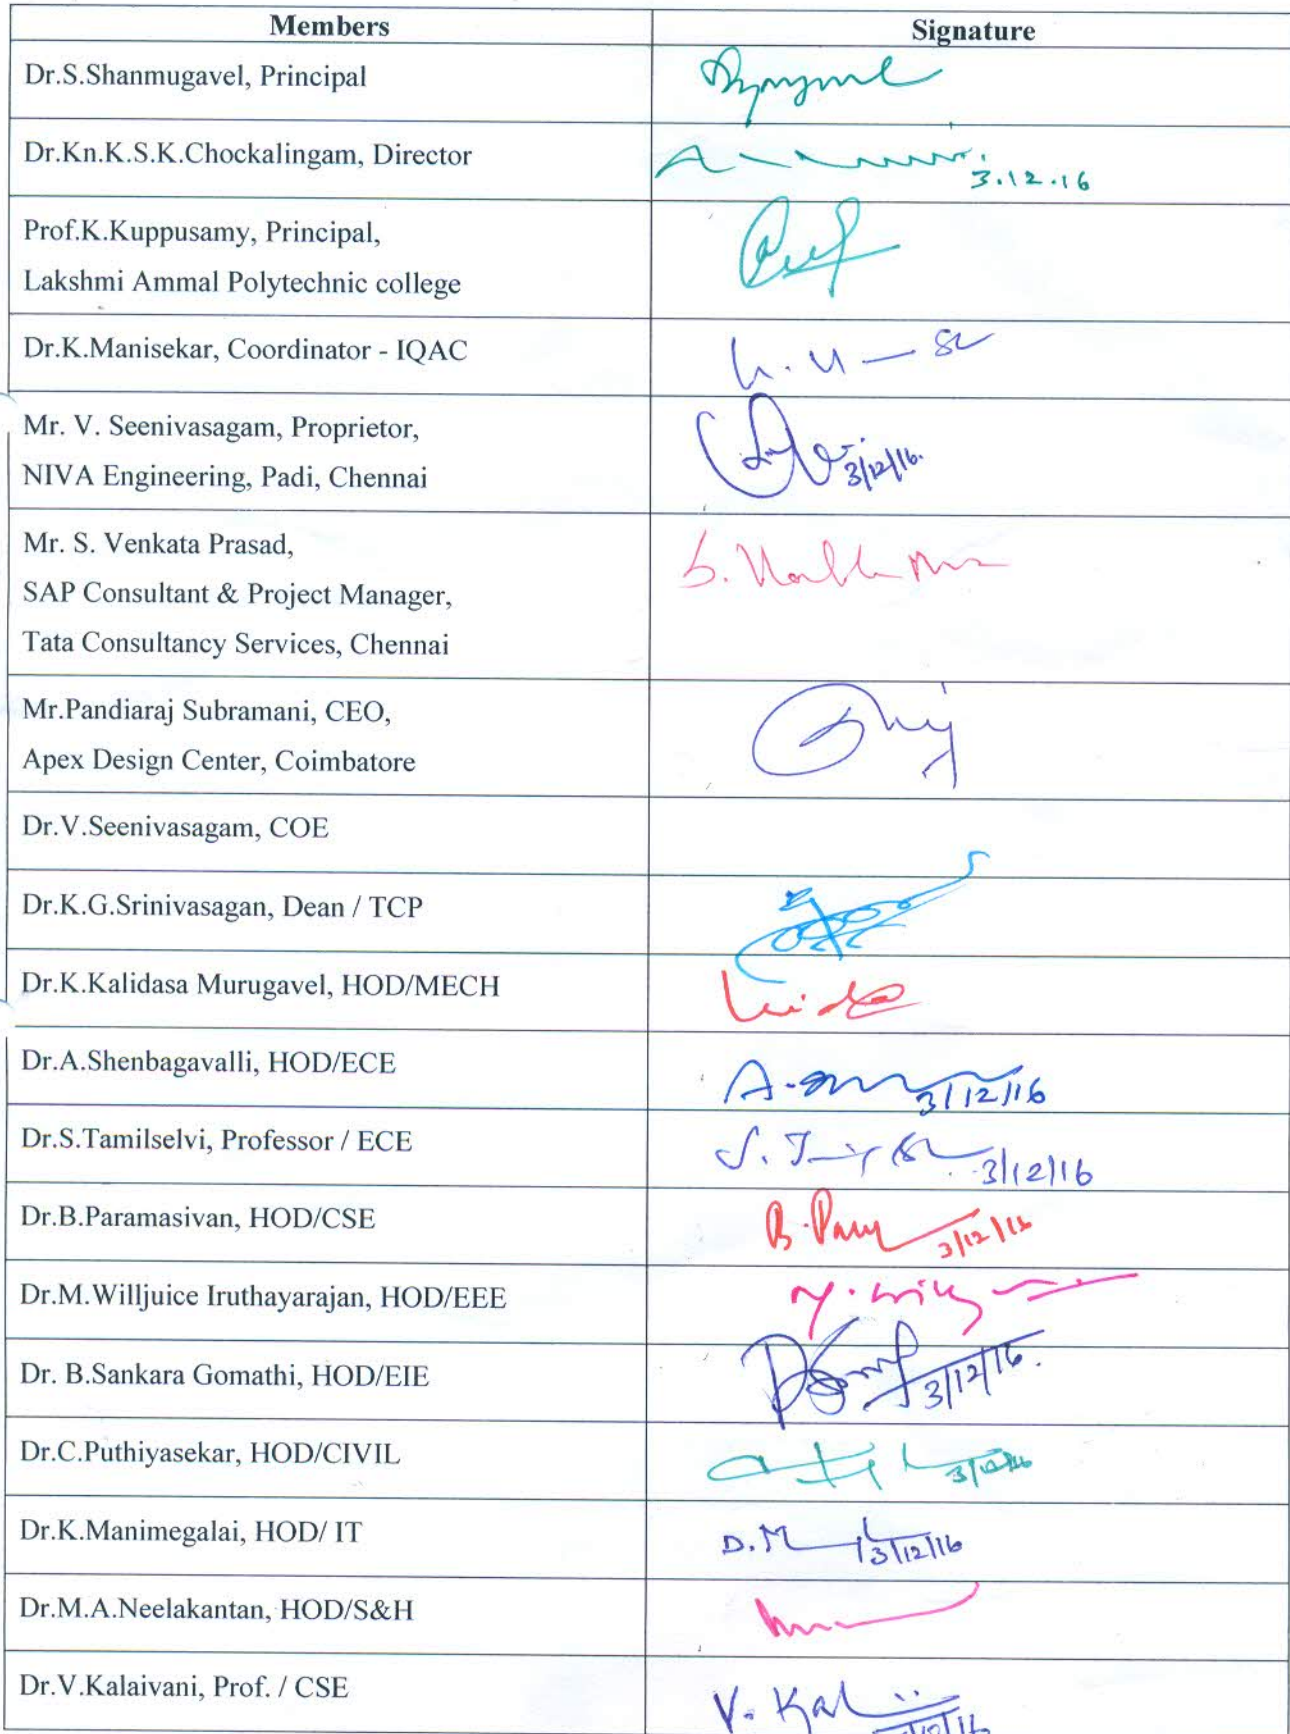 Members Signature
Dr.S.Shanmugavel, Principal
Dr.Kn.K.S.K.Chockalingam, Director
3.12.16
Prof.K.Kuppusamy, Principal,
Lakshmi Ammal Polytechnic college
Dr.K.Manisekar, Coordinator - IQAC
Mr. V. Seenivasagam, Proprietor,
NIVA Engineering, Padi, Chennai
3/12/16.
Mr. S. Venkata Prasad,
SAP Consultant & Project Manager,
Tata Consultancy Services, Chennai
Mr.Pandiaraj Subramani, CEO,
Apex Design Center, Coimbatore
Dr.V.Seenivasagam, COE
Dr.K.G.Srinivasagan, Dean / TCP
Dr.K.Kalidasa Murugavel, HOD/MECH
Dr.A.Shenbagavalli, HOD/ECE
3/12/16
Dr.S.Tamilselvi, Professor / ECE
3/12/16
Dr.B.Paramasivan, HOD/CSE
3/12/16
Dr.M.Willjuice Iruthayarajan, HOD/EEE
Dr. B.Sankara Gomathi, HOD/EIE
3/12/16.
Dr.C.Puthiyasekar, HOD/CIVIL
3/12/16
Dr.K.Manimegalai, HOD/ IT
D.M 3/12/16
Dr.M.A.Neelakantan, HOD/S&H
Dr.V.Kalaivani, Prof. / CSE
V. Kal